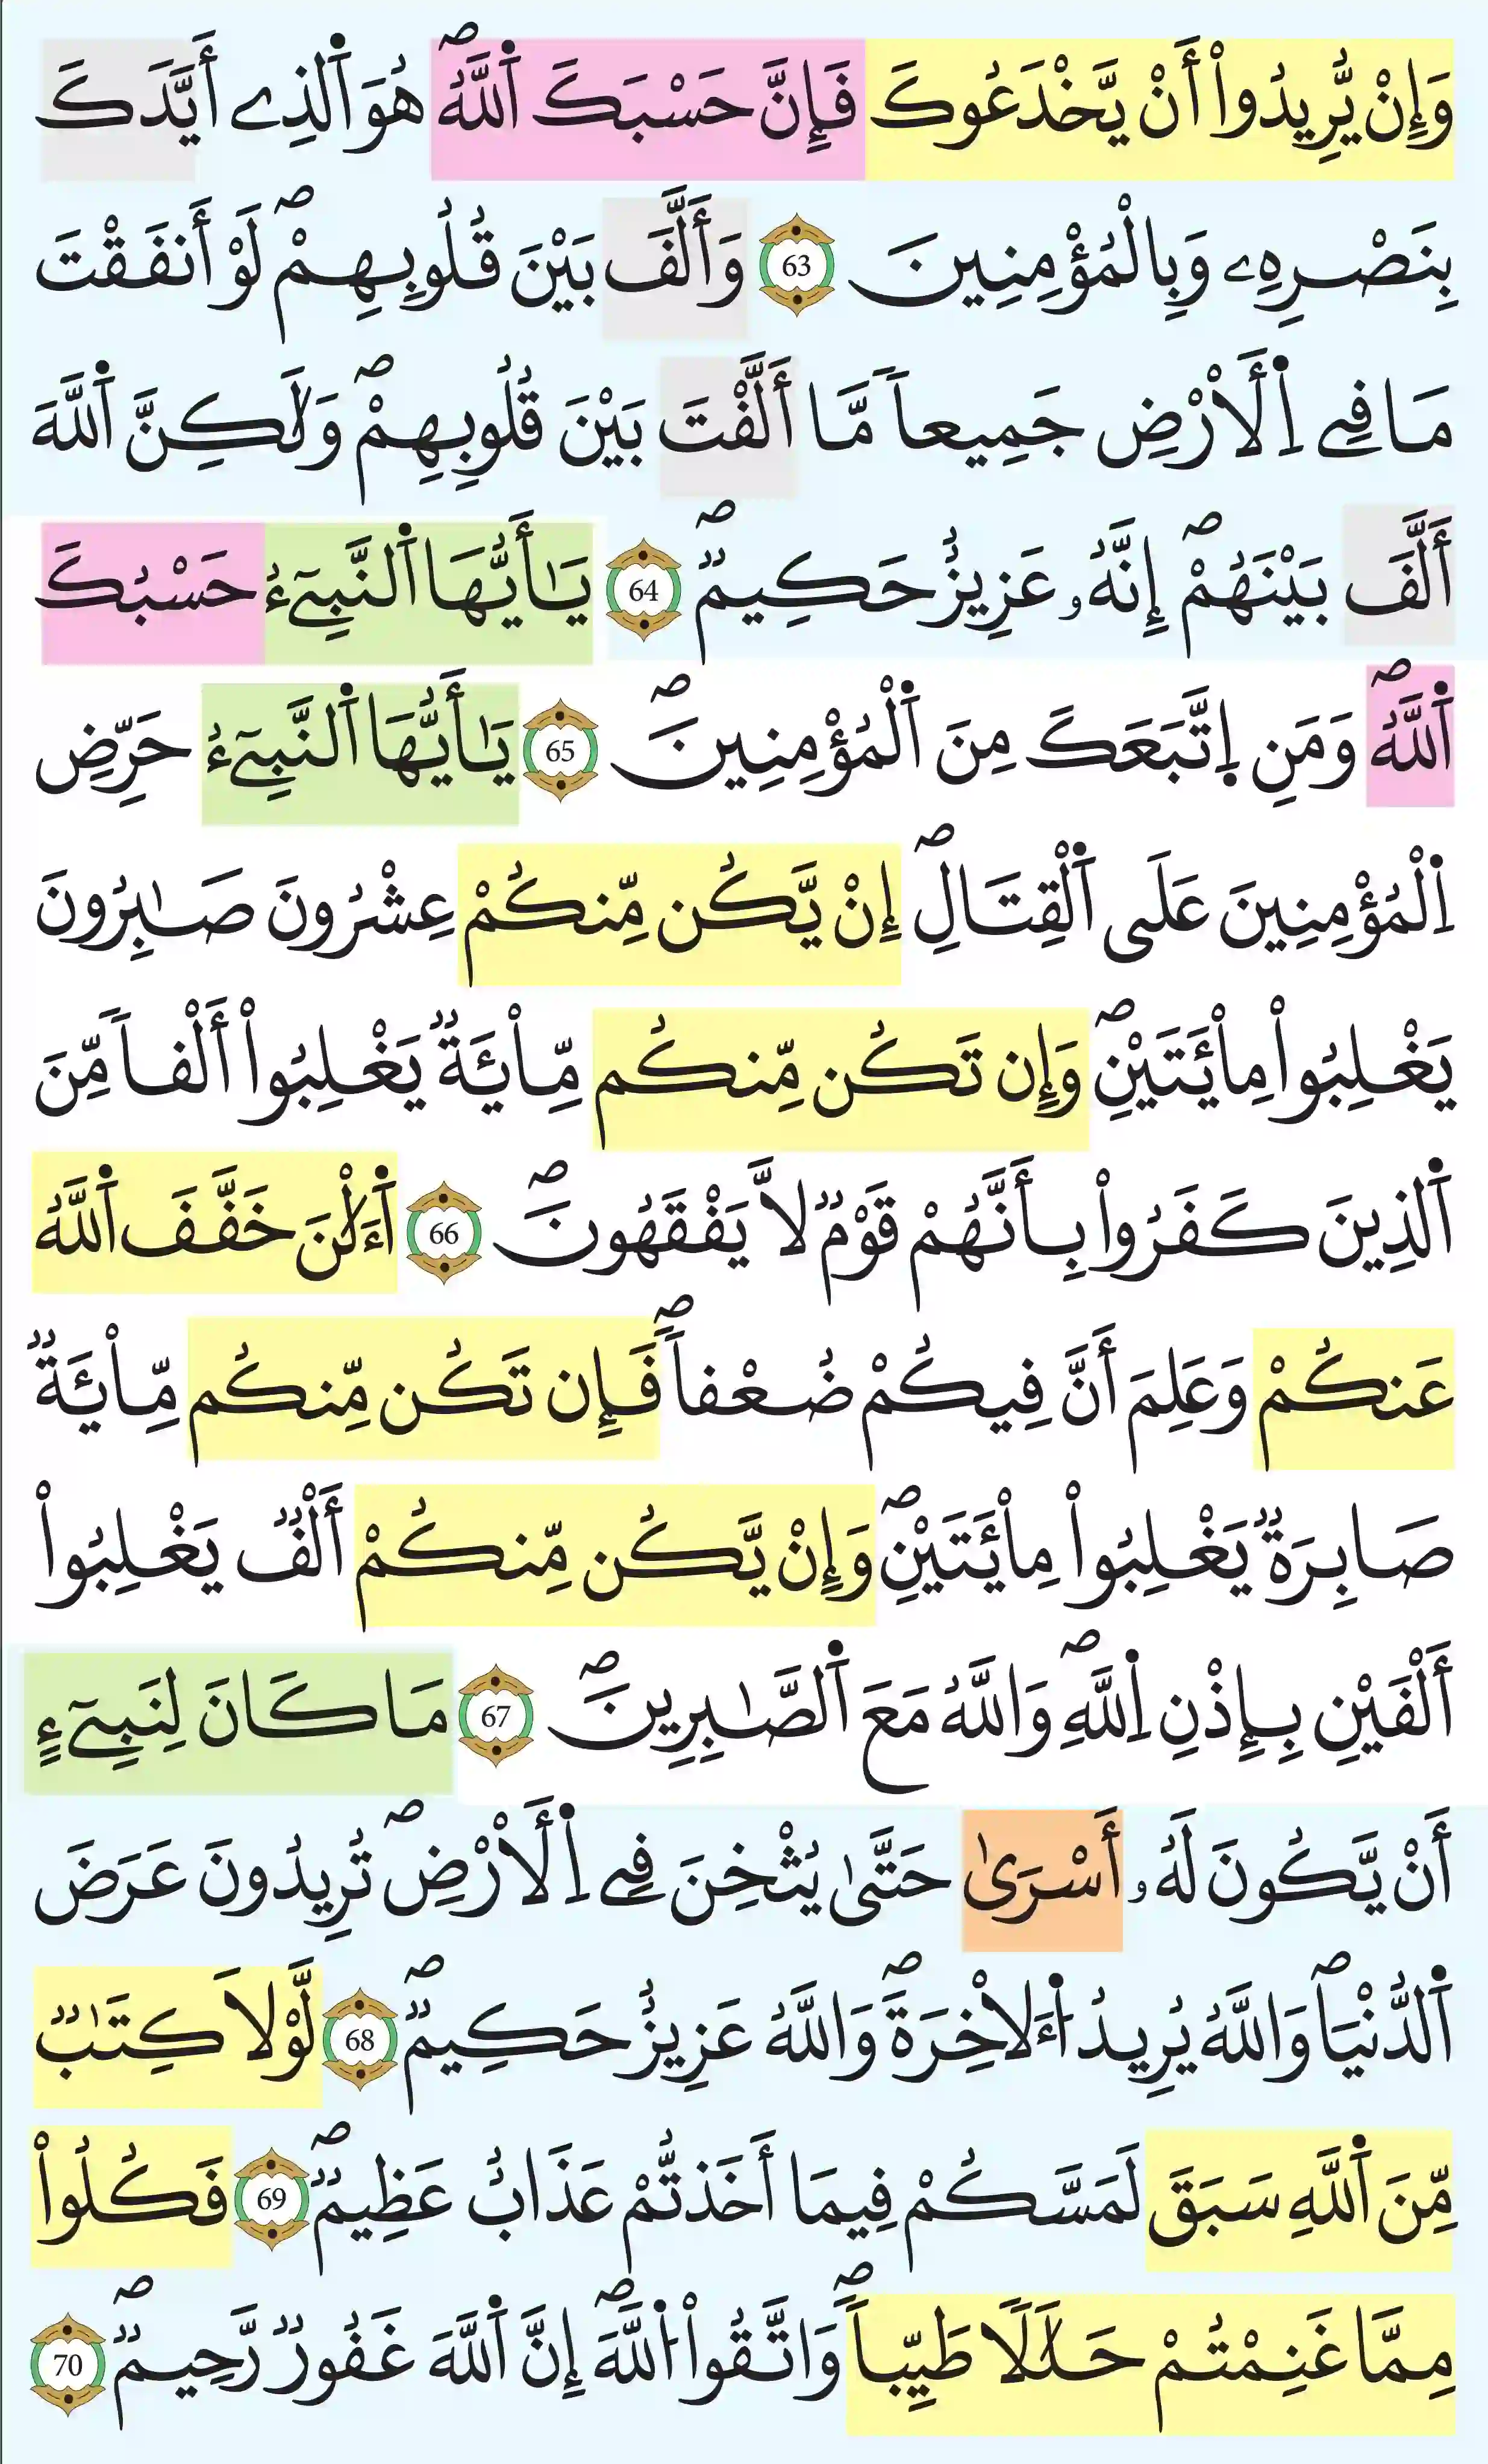 وَإِنْ يُّرِيدُواْ أَنْ يَّخْدَعُوكَ فَإِنَّ حَسْبَكَ اَ۬للَّهُۖ هُوَ اَ۬لذِے أَيَّدَكَ
بِنَصْرِهِۦ وَبِالْمُؤْمِنِينَ 63 وَأَلَّفَ بَيْنَ قُلُوبِهِمْۖ لَوْ أَنفَقْتَ
مَا فِے اِ۬لَارْضِ جَمِيعاٗ مَّا أَلَّفْتَ بَيْنَ قُلُوبِهِمْۖ وَلَٰكِنَّ اَ۬للَّهَ
أَلَّفَ بَيْنَهُمْۖ إِنَّهُۥ عَزِيزٌ حَكِيمٞۖ 64 يَٰأَيُّهَا اَ۬لنَّبِےٓءُ حَسْبُكَ
اَ۬للَّهُۖ وَمَنِ اِ۪تَّبَعَكَ مِنَ اَ۬لْمُؤْمِنِينَۖ 65 يَٰأَيُّهَا اَ۬لنَّبِےٓءُ حَرِّضِ
اِ۬لْمُؤْمِنِينَ عَلَى اَ۬لْقِتَالِۖ إِنْ يَّكُن مِّنكُمْ عِشْرُونَ صَٰبِرُونَ
يَغْلِبُواْ مِاْئَتَيْنِۖ وَإِن تَكُن مِّنكُم مِّاْئَةٞ يَغْلِبُواْ أَلْفاٗ مِّنَ
اَ۬لذِينَ كَفَرُواْ بِأَنَّهُمْ قَوْمٞ لَّا يَفْقَهُونَۖ 66 اَ۬لَٰٔنَ خَفَّفَ اَ۬للَّهُ
عَنكُمْ وَعَلِمَ أَنَّ فِيكُمْ ضُعْفاٗۖ فَإِن تَكُن مِّنكُم مِّاْئَةٞ
صَابِرَةٞ يَغْلِبُواْ مِاْئَتَيْنِۖ وَإِنْ يَّكُن مِّنكُمْ أَلْفٞ يَغْلِبُواْ
أَلْفَيْنِ بِإِذْنِ اِ۬للَّهِۖ وَاللَّهُ مَعَ اَ۬لصَّٰبِرِينَۖ 67 مَا كَانَ لِنَبِےٓءٍ
أَنْ يَّكُونَ لَهُۥ أَسْرَىٰ حَتَّىٰ يُثْخِنَ فِے اِ۬لَارْضِۖ تُرِيدُونَ عَرَضَ
اَ۬لدُّنْيَاۖ وَاللَّهُ يُرِيدُ اُ۬لَاخِرَةَۖ وَاللَّهُ عَزِيزٌ حَكِيمٞۖ 68 لَّوْلَا كِتَٰبٞ
مِّنَ اَ۬للَّهِ سَبَقَ لَمَسَّكُمْ فِيمَا أَخَذتُّمْ عَذَابٌ عَظِيمٞۖ 69 فَكُلُواْ
مِمَّا غَنِمْتُمْ حَلَٰلاٗ طَيِّباٗۖ وَاتَّقُواْ اُ۬للَّهَۖ إِنَّ اَ۬للَّهَ غَفُورٞ رَّحِيمٞۖ 70